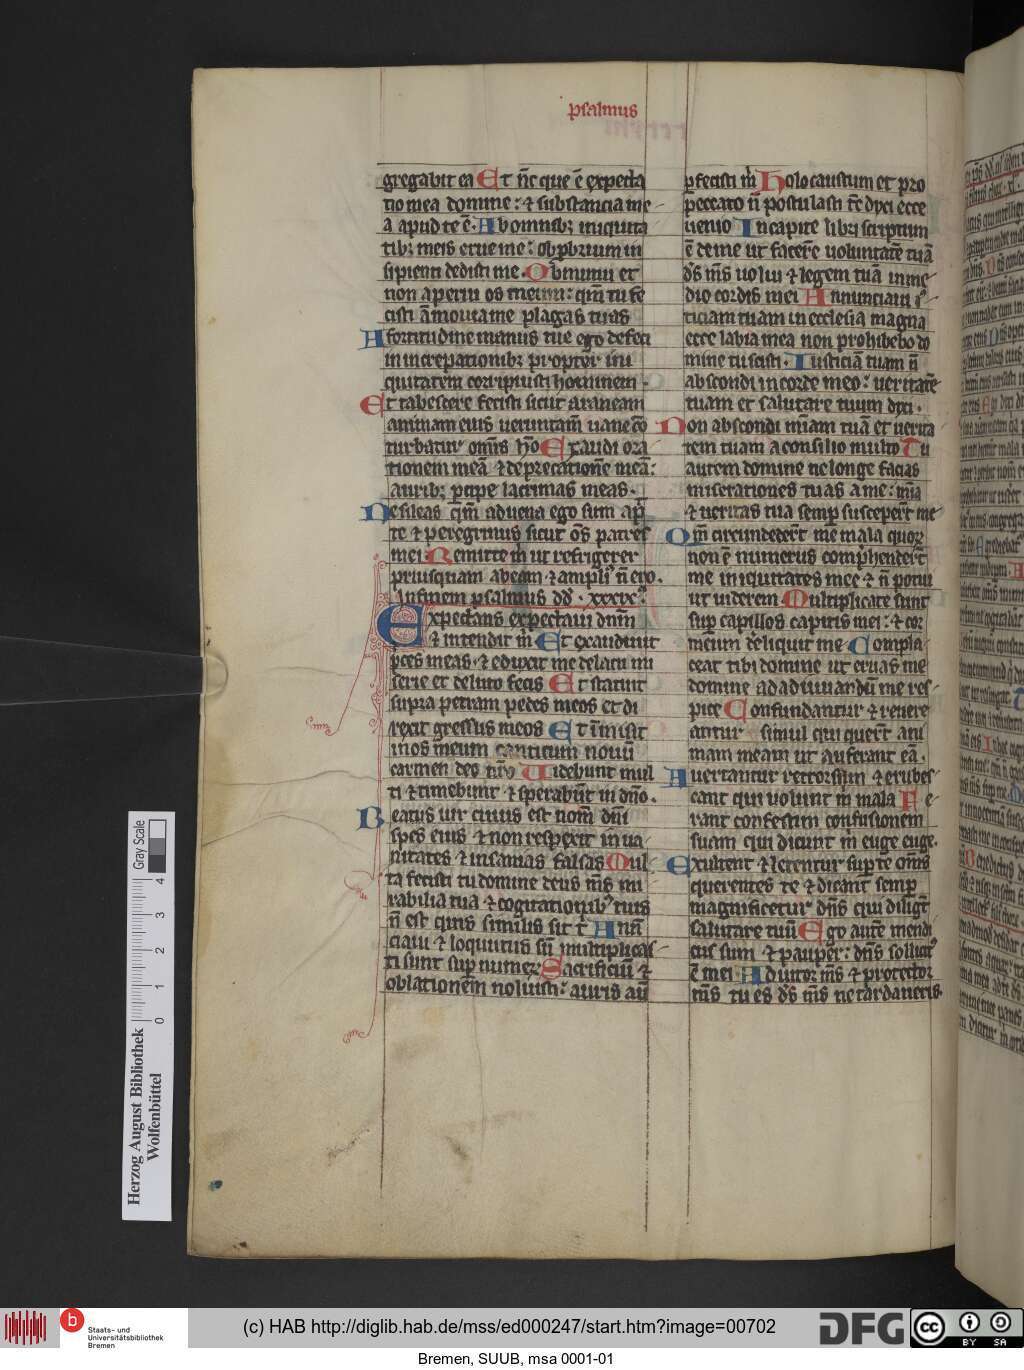 psalmus
gregabit ea Et nc̄ que ē expecta
tio mea domine : ⁊ substancia me
a apud te ē . Ab omnibꝫ iniquita
tibꝫ meis erue me : obꝓbrium in
sipienti dedisti me . Obmutui et
non aperui os meum : qm̄ tu fe
cisti āmoue a me plagas tuas
A fortitudine manus tue ego defeci
in increpationibꝫ propter ini
quitatem corripuisti hominem .
Et tabescere fecisti sicut araneam
animam eius ueruntam̄ uane cō
turbatur omīs hō Exaudi ora
tionem meā ⁊ deprecationē meā :
auribꝫ ꝑcipe lacrimas meas .
Ne sileas qm̄ aduena ego sum apḋ
te ⁊ peregrinus sicut oēs patres
mei Remitte m̄ ut refrigerer
priusquam abeam ⁊ ampliꝰ n̄ ero .
In finem psalmus dd̄ . xxxix .
Expectans expectaui dnm̄
⁊ intendit m̄ Et exaudiuit
ꝑces meas . ⁊ eduxit me de lacu mi
serie et de luto fecis Et statuit
supra petram pedes meos et di
rexit gressus meos Et īmisit
in os meum canticum nouū
carmen deo nr̄o Uidebunt mul
ti ⁊ timebunt ⁊ sperabūt in dn̄o .
Beatus uir cuius est nom̄ dn̄i
spes eius ⁊ non respexit in ua
nitates ⁊ insanias falsas Mul
ta fecisti tu domine deus m̄s mi
rabilia tua ⁊ cogitationibꝰ tuis
n̄ est quis similis sit t̄ Annū
ciaui ⁊ loqutus sū multiplicas
ti sunt suꝑ numeꝝ Sacrificiū ⁊
oblationem noluisti : auris aū
ꝑfecisti m̄ Holocaustum et pro
peccato n̄ postulasti tc̄ dyxi ecce
uenio In capite libri scriptum
ē de me ut facerē uoluntatē tuā
ds̄ ms̄ uolui ⁊ legem tuā in me
dio cordis mei Annunciaui iꝰ
ticiam tuam in ecclesia magna
ecce labia mea non prohibebo do
mine tu scisti . Iusticiā tuam n̄
abscondi in corde meo : ueritatē
tuam et salutare tuum dyxi .
Non abscondi mīam tuā et uerita
tem tuam a consilio multo Tu
autem domine ne longe facias
miserationes tuas a me : mīa
⁊ ueritas tua semꝑ susceper̄t me
Qm̄ circundeder̄t me mala quoꝝ
non ē numerus comp̄hender̄t
me iniquitates mee ⁊ n̄ potui
ut uiderem Multiplicate sunt
suꝑ capillos capitis mei : ⁊ cor
meum d̄eliquit me Compla
ceat tibi domine ut eruas me
domine ad adiuuandū me res
pice Confundantur ⁊ reuere
antur simul qui quer̄t ani
mam meam ut auferant eā .
Auertantur retrorsum ⁊ erubes
cant qui uolunt m̄ mala Fe
rant confestim confusionem
suam qui dicunt m̄ euge euge .
Exultent ⁊ letentur suꝑ te om̄s
querentes te ⁊ dicant semꝑ
magnificetur dn̄s qui diligūt
salutare tuū Ego autē mendi
cus sum ⁊ pauper : dn̄s sollicitꝰ
ē mei Adiutor ms̄ ⁊ protector
ms̄ tu es ds̄ ms̄ ne tardaueris .
Gray Scale
0 1 2 3 4
Herzog August Bibliothek
Wolfenbüttel
b
Staats- und
Universitätsbibliothek
Bremen
(c) HAB http://diglib.hab.de/mss/ed000247/start.htm?image=00702
DFG
cc
BY SA
Bremen, SUUB, msa 0001-01